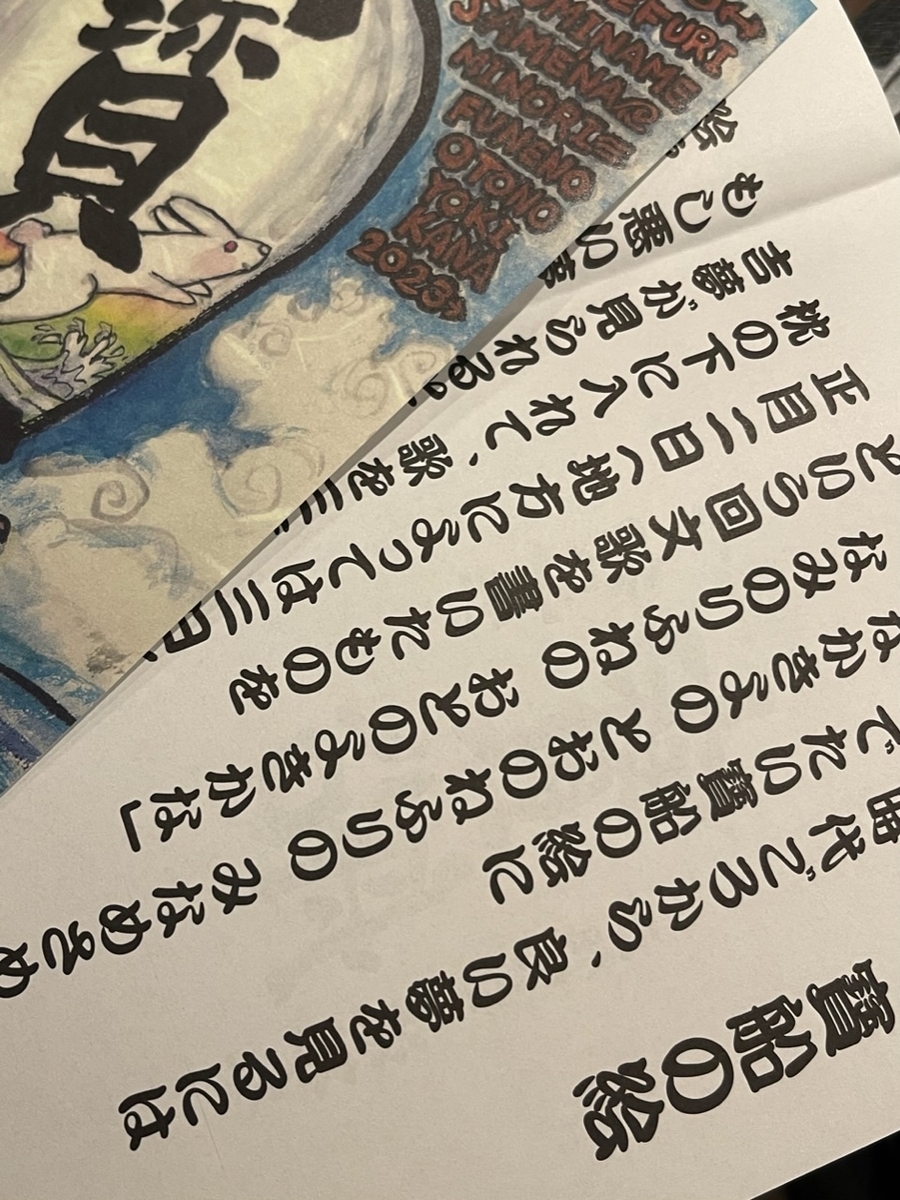 寶船の絵
時代ごろから、良い夢を見るには
でたい寶船の絵に
なかきよの とおのねふりの みなめさめ
なみのりふねの おとのよきかな」
という回文歌を書いたものを
正月二日(地方によっては三日
枕の下に入れて、歌を三
吉夢が見られると
もし悪い夢
絵
EFURI
MINAME
SAMENA
FUNENO
OTONO
YOKI
KANA
2023